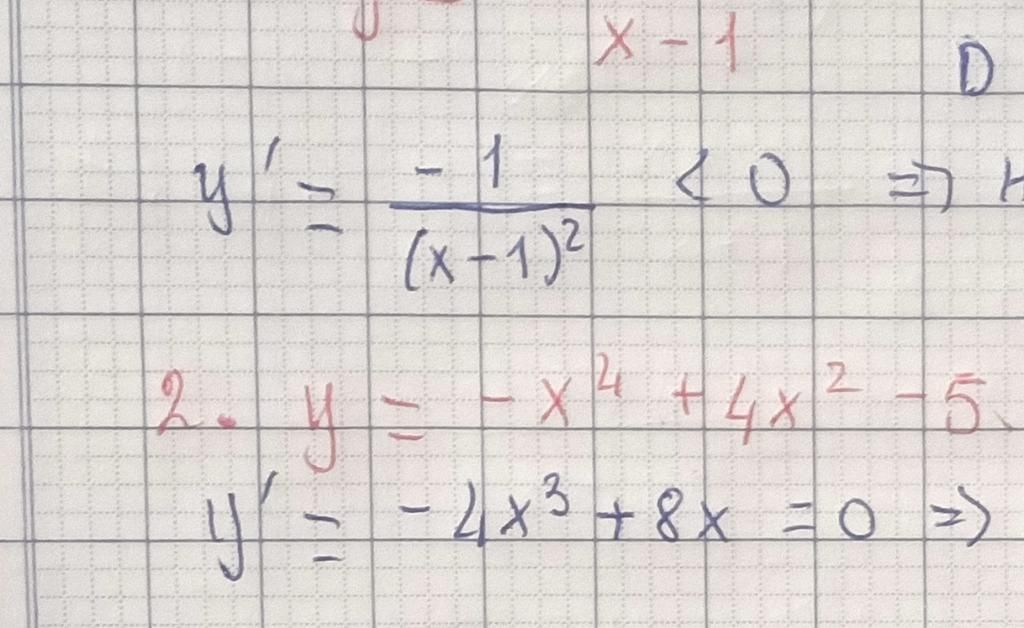 x - 1
D
y' = -1/(x-1)² < 0 =>
2. y = -x⁴ + 4x² - 5
y' = -4x³ + 8x = 0 =>